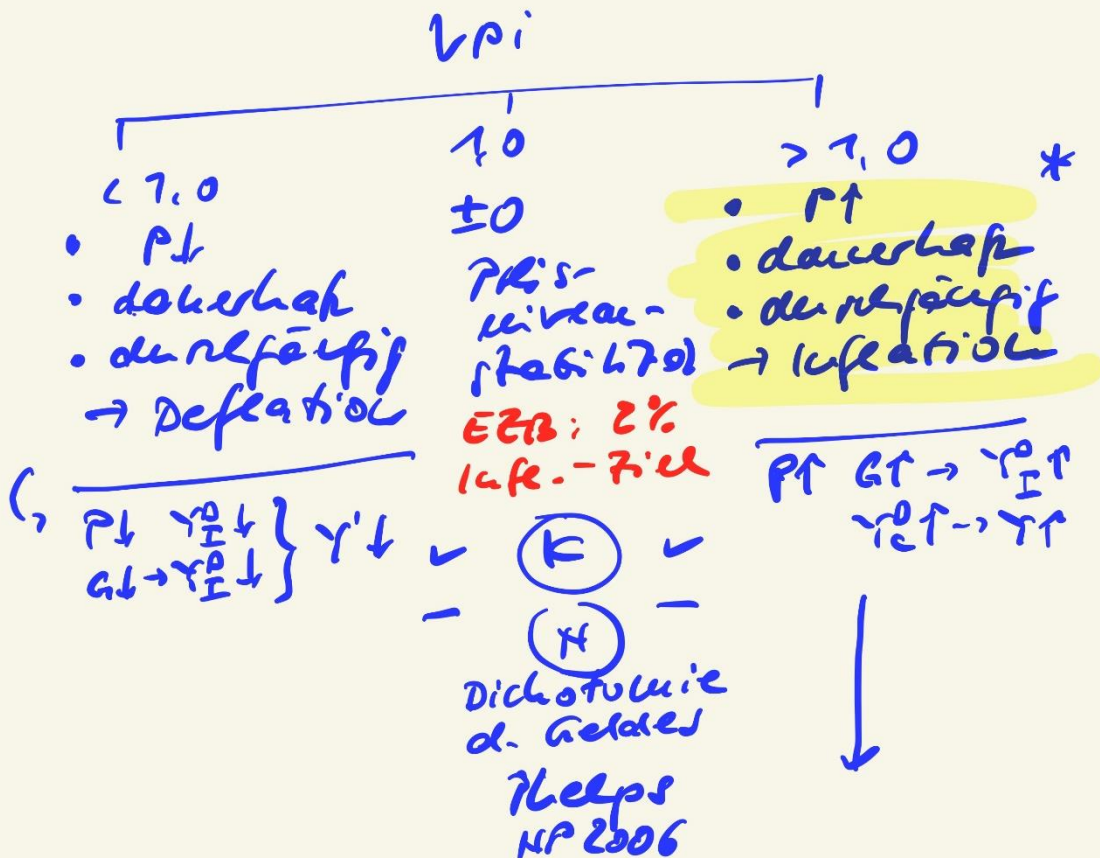 VPI
< 1,0
• P↓
• dauerhaft
• durchgängig
→ Deflation
P↓ Y^D_I ↓
G↓ → Y^D_I ↓ } Y' ↓
1,0
±0
Preis-
niveau-
stabilität
EZB: 2%
Infl.-Ziel
✓ K ✓
– N –
Dichotomie
d. Geldes
Phelps
NP 2006
> 1,0 *
• P↑
• dauerhaft
• durchgängig
→ Inflation
P↑ G↑ → Y^D_I ↑
Y^D_C ↑ → Y↑